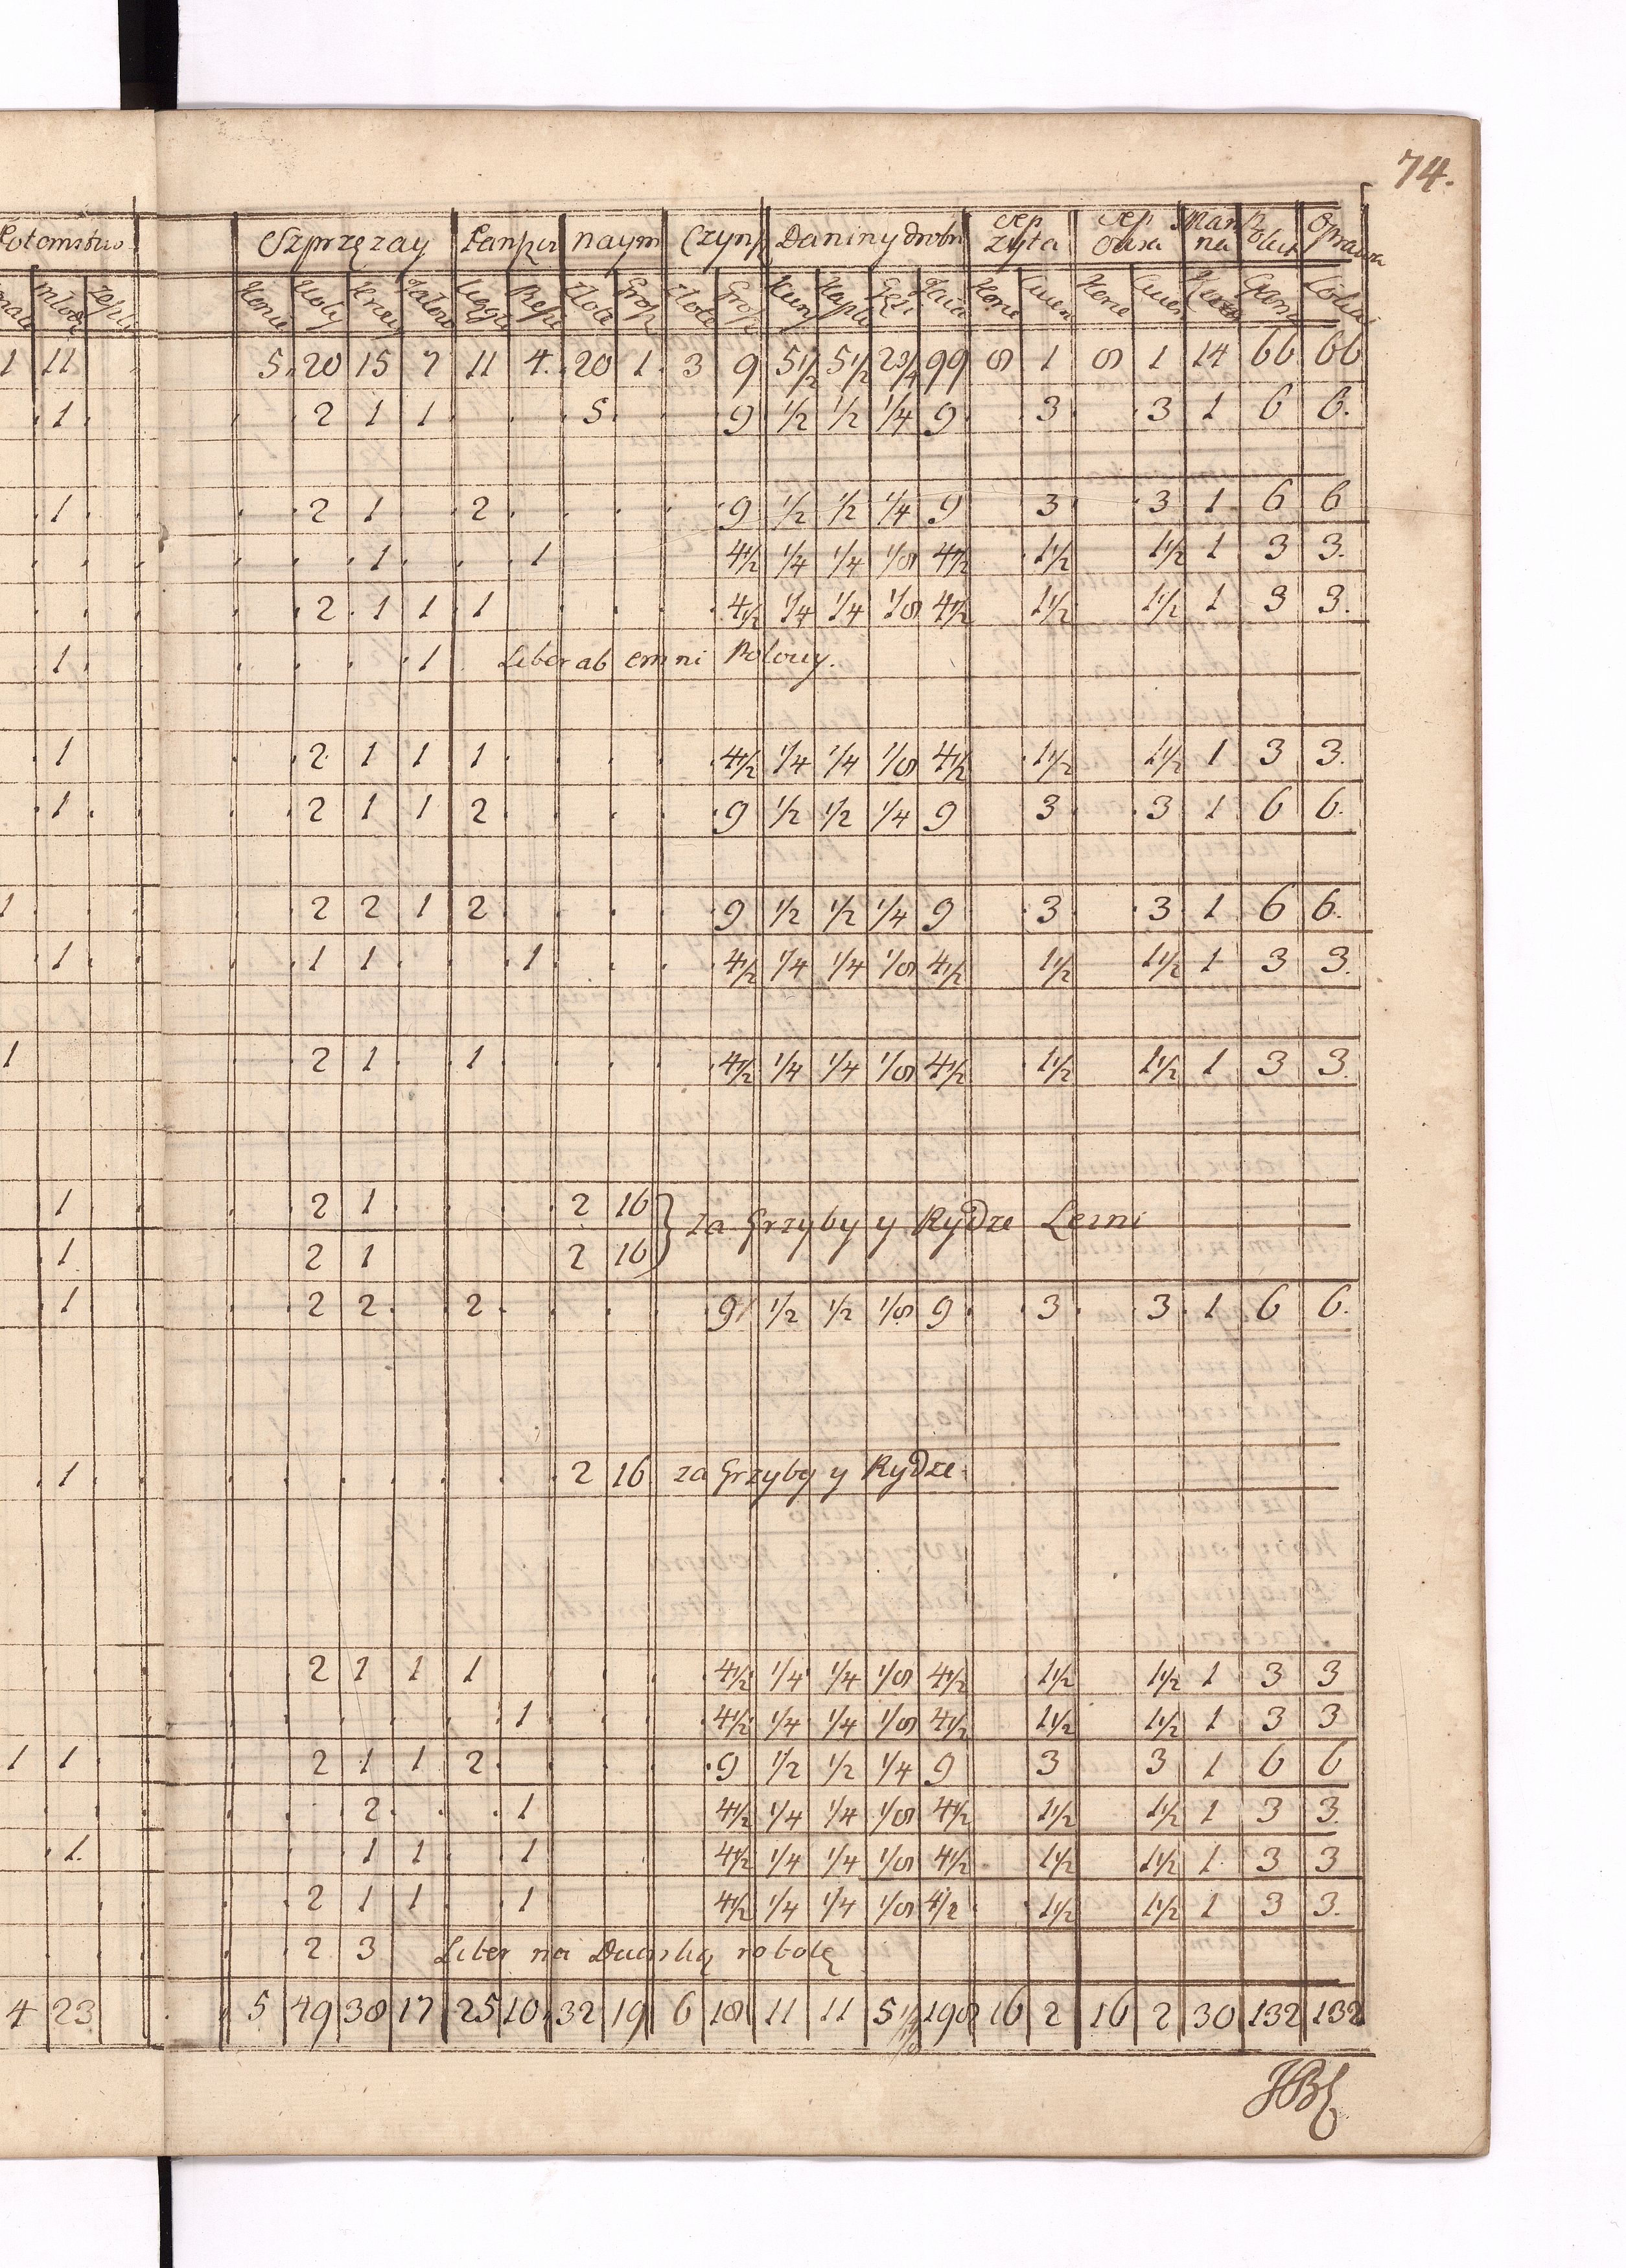 74.
Potomstwo Szprzęzay Panszcz naym Czynsz Daniny drobn Sep zyta Sep owsa Stan na
młodz Konie Woły Krow Jałow Ciągłe Piesze Złote Grosz Złote Grosz Kury Kapło Gęsi Jaia Korce Cwier Korce Cwier
1 11 5 20 15 7 11 4 20 1 3 9 5½ 5½ 2¾ 99 8 1 8 1 14 66 66
1 2 1 1 5 9 ½ ½ ¼ 9 3 3 1 6 6.
1 2 1 2 9 ½ ½ ¼ 9 3 3 1 6 6
1 1 4½ ¼ ¼ ⅛ 4½ 1½ 1½ 1 3 3.
2 1 1 1 4½ ¼ ¼ ⅛ 4½ 1½ 1½ 1 3 3.
1 1 Liber ab omni
1 2 1 1 1 4½ ¼ ¼ ⅛ 4½ 1½ 1½ 1 3 3.
1 2 1 1 2 9 ½ ½ ¼ 9 3 3 1 6 6.
1 2 2 1 2 9 ½ ½ ¼ 9 3 3 1 6 6.
1 1 1 1 4½ ¼ ¼ ⅛ 4½ 1½ 1½ 1 3 3.
1 2 1 1 4½ ¼ ¼ ⅛ 4½ 1½ 1½ 1 3 3.
1 2 1 2 16
za Grzyby y Rydze Lesni
1 2 1 2 16
1 2 2 2 9 ½ ½ ⅛ 9 3 3 1 6 6.
1 2 16 za Grzyby y Rydze
2 1 1 1 4½ ¼ ¼ ⅛ 4½ 1½ 1½ 1 3 3
1 4½ ¼ ¼ ⅛ 4½ 1½ 1½ 1 3 3
1 1 2 1 1 2 9 ½ ½ ¼ 9 3 3 1 6 6
2 1 4½ ¼ ¼ ⅛ 4½ 1½ 1½ 1 3 3.
1 1 1 1 4½ ¼ ¼ ⅛ 4½ 1½ 1½ 1 3 3
2 1 1 1 4½ ¼ ¼ ⅛ 4/2 1½ 1½ 1 3 3.
2 3 Liber na robotę
4 23 5 49 38 17 25 10 32 19 6 18 11 11 5 198 16 2 16 2 30 132 132